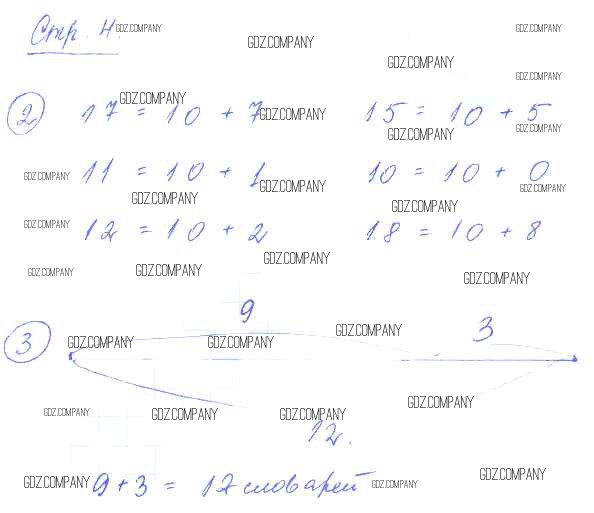 Стр. 4. GDZ.COMPANY GDZ.COMPANY
GDZ.COMPANY
GDZ.COMPANY
GDZ.COMPANY
GDZ.COMPANY
2 17 = 10 + 7 GDZ.COMPANY 15 = 10 + 5
GDZ.COMPANY GDZ.COMPANY
GDZ.COMPANY 11 = 10 + 1 10 = 10 + 0
GDZ.COMPANY GDZ.COMPANY
GDZ.COMPANY GDZ.COMPANY
GDZ.COMPANY 12 = 10 + 2 18 = 10 + 8
GDZ.COMPANY
GDZ.COMPANY GDZ.COMPANY GDZ.COMPANY
9
3 GDZ.COMPANY GDZ.COMPANY GDZ.COMPANY 3
GDZ.COMPANY
GDZ.COMPANY GDZ.COMPANY GDZ.COMPANY
12.
GDZ.COMPANY 9 + 3 = 12 словарей GDZ.COMPANY GDZ.COMPANY